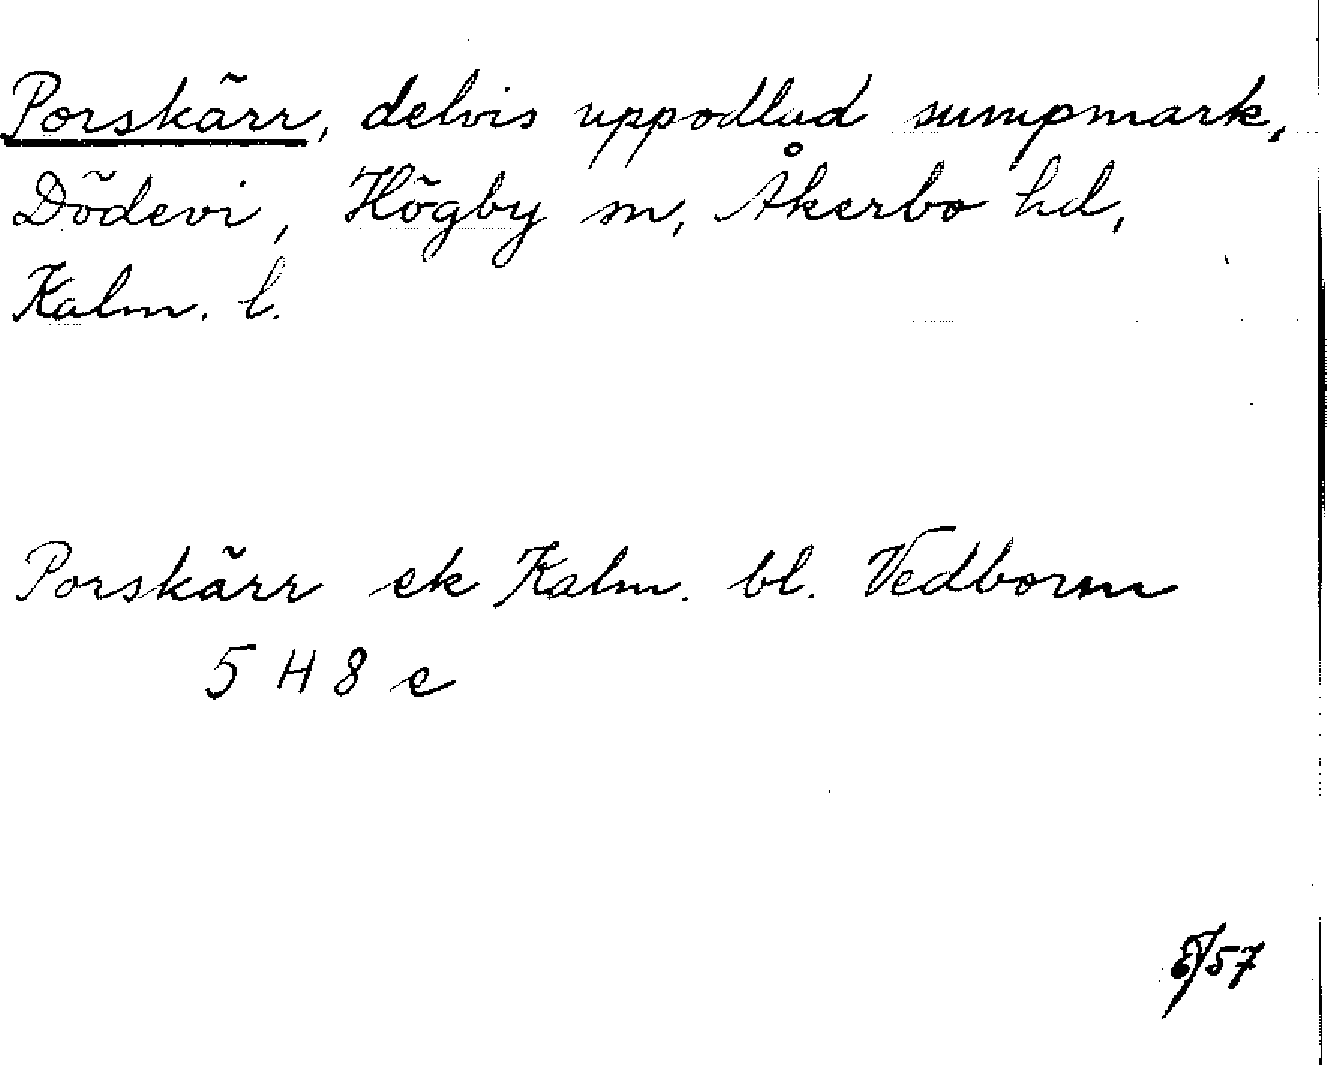 Porskärr, delvis uppodlad sumpmark,
Dödevi, Högby sn, Åkerbo hd,
Kalm. l.
Porskärr ek Kalm. bl. Vedborm
5 H 8 e
/57